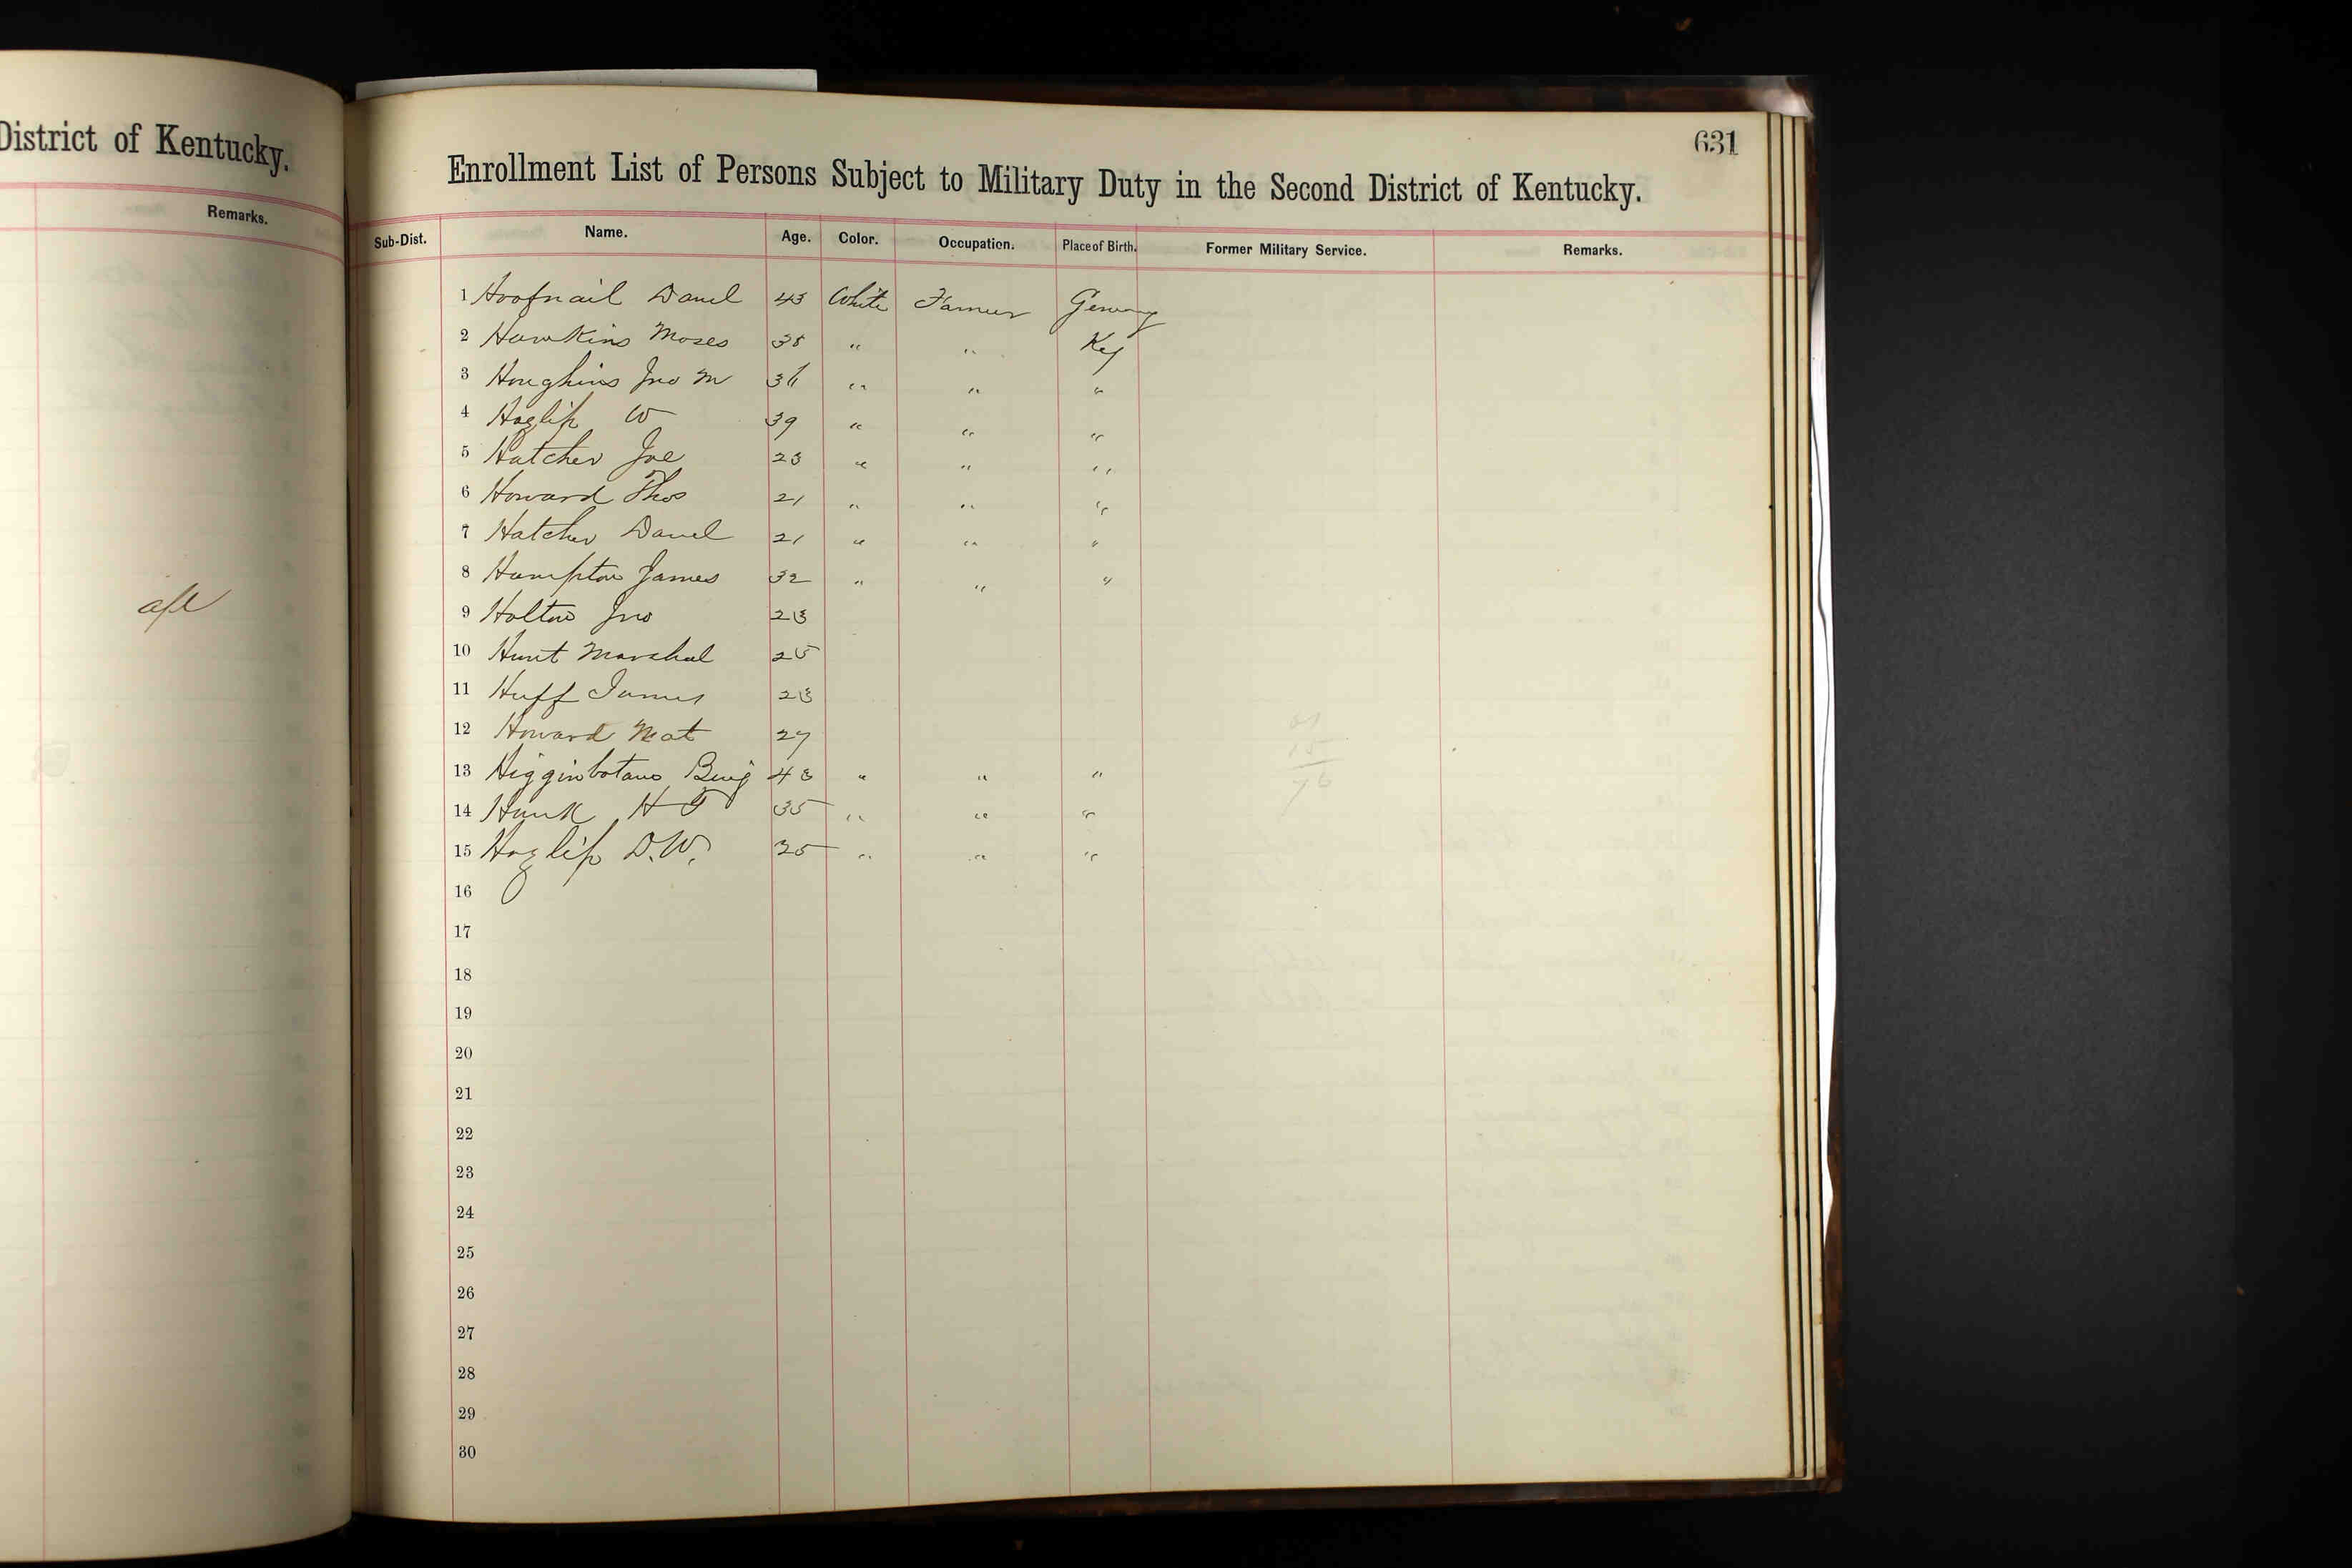 District of Kentucky.
Remarks.
afl
631
Enrollment List of Persons Subject to Military Duty in the Second District of Kentucky.
Sub-Dist. Name. Age. Color. Occupation. Place of Birth. Former Military Service. Remarks.
1 Hoofnail Danel 43 White Farmer Germany
2 Hawkins Moses 38 " " Ky
3 Houghins Jno M 36 " " "
4 Hazlip W 39 " " "
5 Hatcher Joe 23 " " "
6 Howard Thos 21 " " "
7 Hatcher Danel 21 " " "
8 Hampton James 32 " " "
9 Holton Jno 23
10 Hunt Marshal 25
11 Huff James 23
12 Howard Mat 27
13 Higginbotham Benj 43 " " "
14 Hank H T 35 " " "
15 Hazlip D.W. 35 " " "
16
17
18
19
20
21
22
23
24
25
26
27
28
29
30